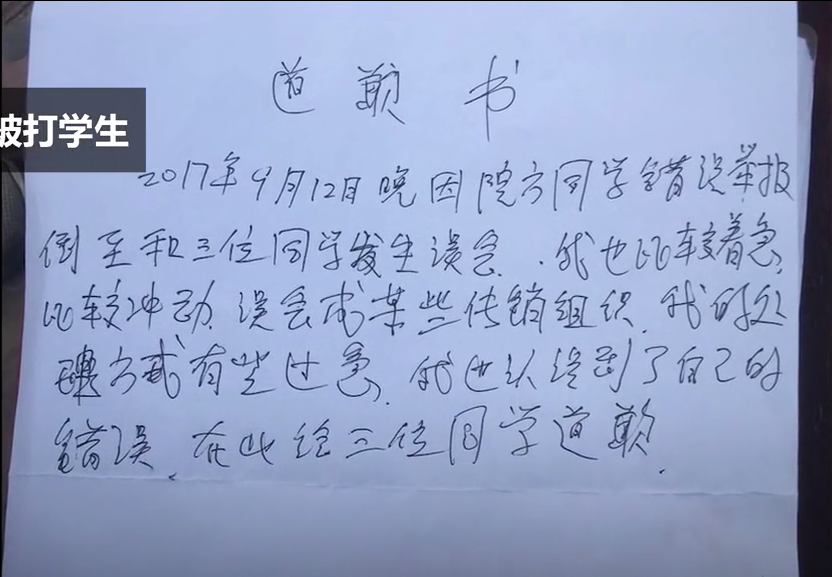 道歉书
被打学生
2017年9月12日晚因院方同学错误举报
倒至和三位同学发生误会,我也比较着急,
比较冲动,误会成某些传销组织,我的处
理方式有些过急,我也认识到了自己的
错误,在此给三位同学道歉.